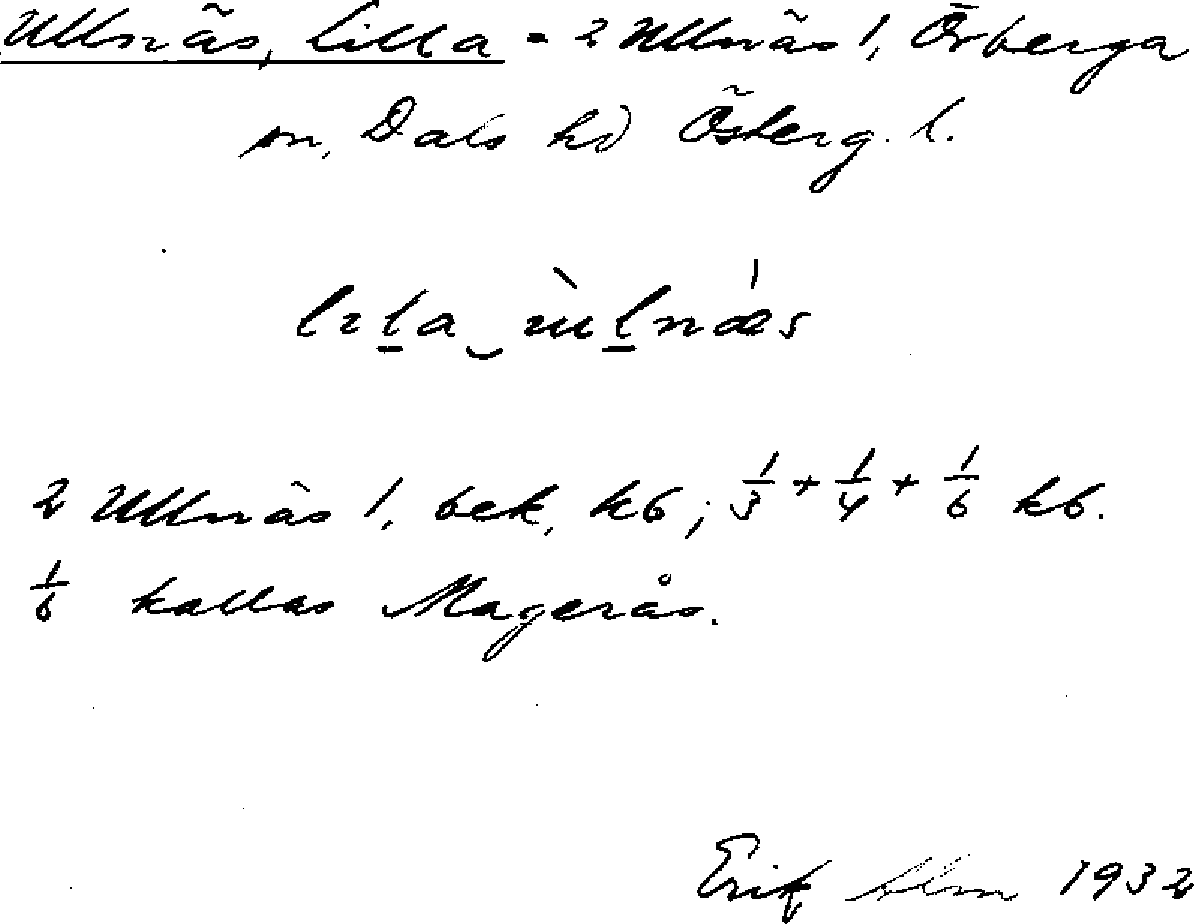 Ullnäs, Lilla = 2 Ullnäs 1, Örberga
sn, Dals hd Österg. l.
lɩla ùlnǽs
2 Ullnäs 1, bek, kb; 1/3 + 1/4 + 1/6 kb.
1/6 kallas Magerås.
Erik 1932